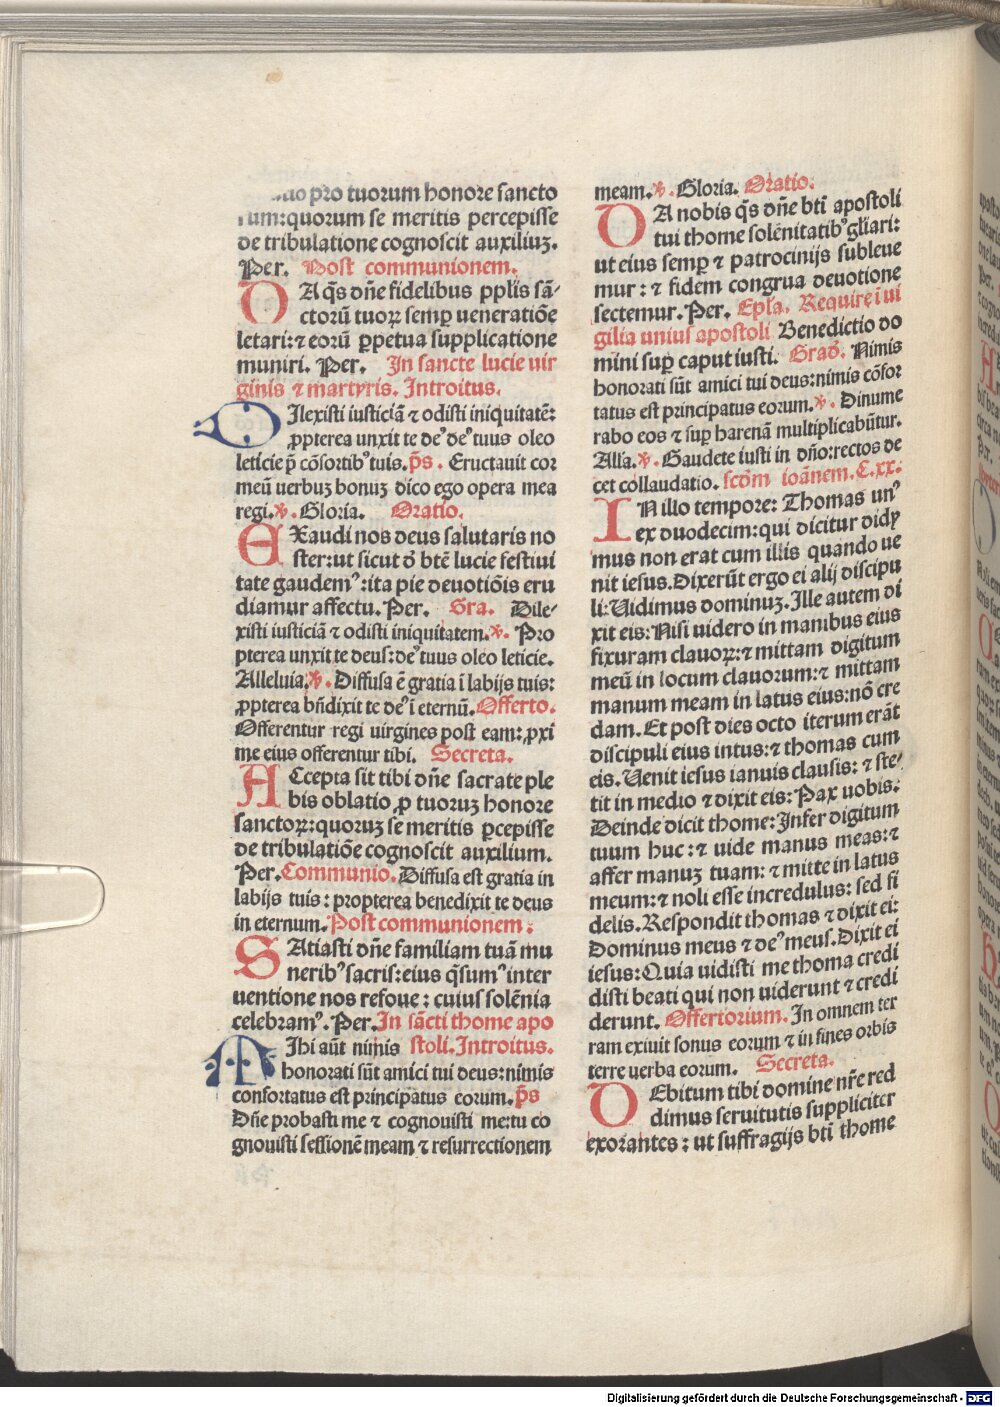 pro tuorum honore sancto
rum:quorum se meritis percepisse
de tribulatione cognoscit auxiliuꝫ.
Per. Post communionem.
DA q̄s dn̄e fidelibus pplīs sā-
ctorū tuoꝝ semꝑ ueneratiōe
letari:⁊ eorū ꝑpetua supplicatione
muniri. Per. In sancte lucie uir
ginis ⁊ martyris. Introitus.
DIlexisti iusticiā ⁊ odisti iniquitatē:
ꝓpterea unxit te deꝰ deꝰ tuus oleo
leticie p̄ cōsortibꝰ tuis. p̄s. Eructauit cor
meū uerbuꝫ bonuꝫ dico ego opera mea
regi. ℣. Gloria. Oratio.
EXaudi nos deus salutaris no
ster:ut sicut ō btē lucie festiui
tate gaudemꝰ:ita pie deuotiōis eru
diamur affectu. Per. Gra. Dile-
xisti iusticiā ⁊ odisti iniquitatem. ℣. Pro
pterea unxit te deus:deꝰ tuus oleo leticie.
Alleluia. ℣. Diffusa ē gratia ī labijs tuis:
ꝓpterea bn̄dixit te deꝰ ī eternū. Offerto.
Offerentur regi uirgines post eam:ꝓxi
me eius offerentur tibi. Secreta.
ACcepta sit tibi dn̄e sacrate ple
bis oblatio ꝓ tuoruꝫ honore
sanctoꝝ:quoruꝫ se meritis ꝑcepisse
de tribulatiōe cognoscit auxilium.
Per. Communio. Diffusa est gratia in
labijs tuis: propterea benedixit te deus
in eternum. Post communionem:
SAtiasti dn̄e familiam tuā mu
neribꝰ sacris:eius q̄sumꝰ inter
uentione nos refoue: cuius solēnia
celebramꝰ. Per. In sācti thome apo
MIhi aūt nimis stoli. Introitus.
honorati sūt amici tui deus:nimis
confortatus est principatus eorum. p̄s
Dn̄e probasti me ⁊ cognouisti me:tu co
gnouisti sessionē meam ⁊ resurrectionem
meam. ℣. Gloria. Oratio:
DA nobis q̄s dn̄e btī apostoli
tui thome solēnitatibꝰ gl̄iari:
ut eius semꝑ ⁊ patrocinijs subleue
mur: ⁊ fidem congrua deuotione
sectemur. Per. Ep̄la. Require ī ui
gilia unius apostoli Benedictio do
mini suꝑ caput iusti. Grad̄. Nimis
honorati sūt amici tui deus:nimis cōfor
tatus est principatus eorum. ℣. Dinume
rabo eos ⁊ suꝑ harenā multiplicabūtur.
All'a. ℣. Gaudete iusti in dn̄o:rectos de
cet collaudatio. scd̄m ioānem. C.xx.
IN illo tempore: Thomas unꝰ
ex duodecim:qui dicitur didy
mus non erat cum illis quando ue
nit iesus. Dixerūt ergo ei alij discipu
li: Uidimus dominuꝫ. Ille autem di
xit eis: Nisi uidero in manibus eius
fixuram clauoꝝ: ⁊ mittam digitum
meū in locum clauorum: ⁊ mittam
manum meam in latus eius:nō cre
dam. Et post dies octo iterum erāt
discipuli eius intus: ⁊ thomas cum
eis. Uenit iesus ianuis clausis: ⁊ ste-
tit in medio ⁊ dixit eis: Pax uobis:
Deinde dicit thome: Infer digitum
tuum huc: ⁊ uide manus meas: ⁊
affer manuꝫ tuam: ⁊ mitte in latus
meum: ⁊ noli esse incredulus: sed fi
delis. Respondit thomas ⁊ dixit ei:
Dominus meus ⁊ deꝰ meus. Dixit ei
iesus: Quia uidisti me thoma credi
disti beati qui non uiderunt ⁊ credi
derunt. Offertorium. In omnem ter
ram exiuit sonus eorum ⁊ in fines orbis
terre uerba eorum. Secreta.
DEbitum tibi domine nr̄e red
dimus seruitutis suppliciter
exorantes: ut suffragijs btī thome
Digitalisierung gefördert durch die Deutsche Forschungsgemeinschaft - DFG